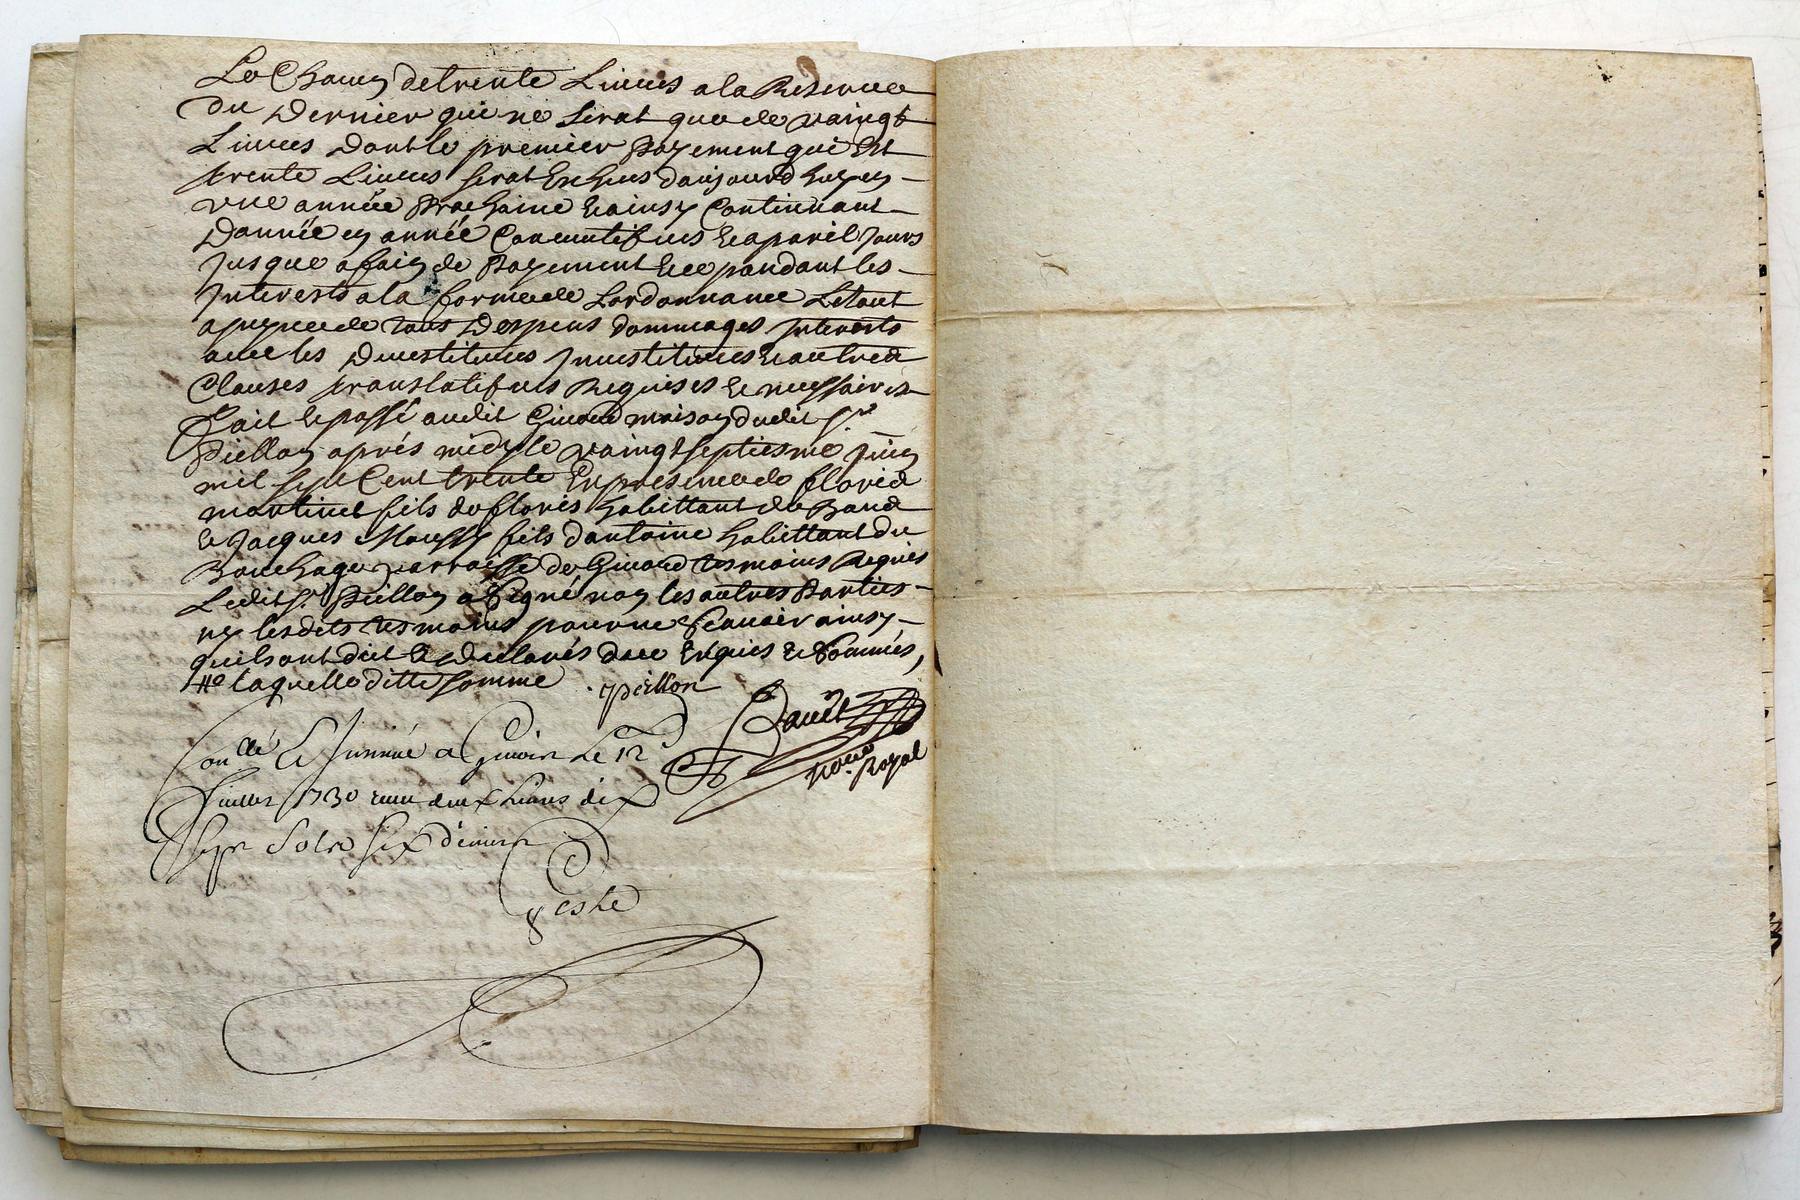 Le Chacun de trente Livres a la Reserve
du Dernier qui ne serat que de vaingt
Livres dont le premier Payement qui Est
trente Livres serat Eschus d'aujourd huy en
une année Prochaine Et ainsy Continuant
D'année en année Consecutifves Et a pareil Jours
Jusque a fain de Payement Et ce pandant les
Interests a la forme de Lordonnance Le tout
a peyne de tous Despens dommages Interests
avec les Devestitures Investitures Et autres
Clauses translatifves Requises Et necessaires
Fait Et passé audit maison dudit Sr
Pillon après midy le vaingt septiesme Juin
mil sept Cent trente En presence de floris
martinet fils de floris habittant de
Et Jacques fils dantoine habittant du
Bouchage parroisse de tesmoins Requis
Ledit Sr Pillon a signé non les autres Parties
ny lesdits tesmoins pour ne scavoir ainsy
quils ont dit Et Declarés de ce Enquis Et sommés,
laquelle ditte somme pillon
Royal
Conllé Et Insinué a le 12e
Juillet 1730 receu deux Livres dix
sept Sols six deniers